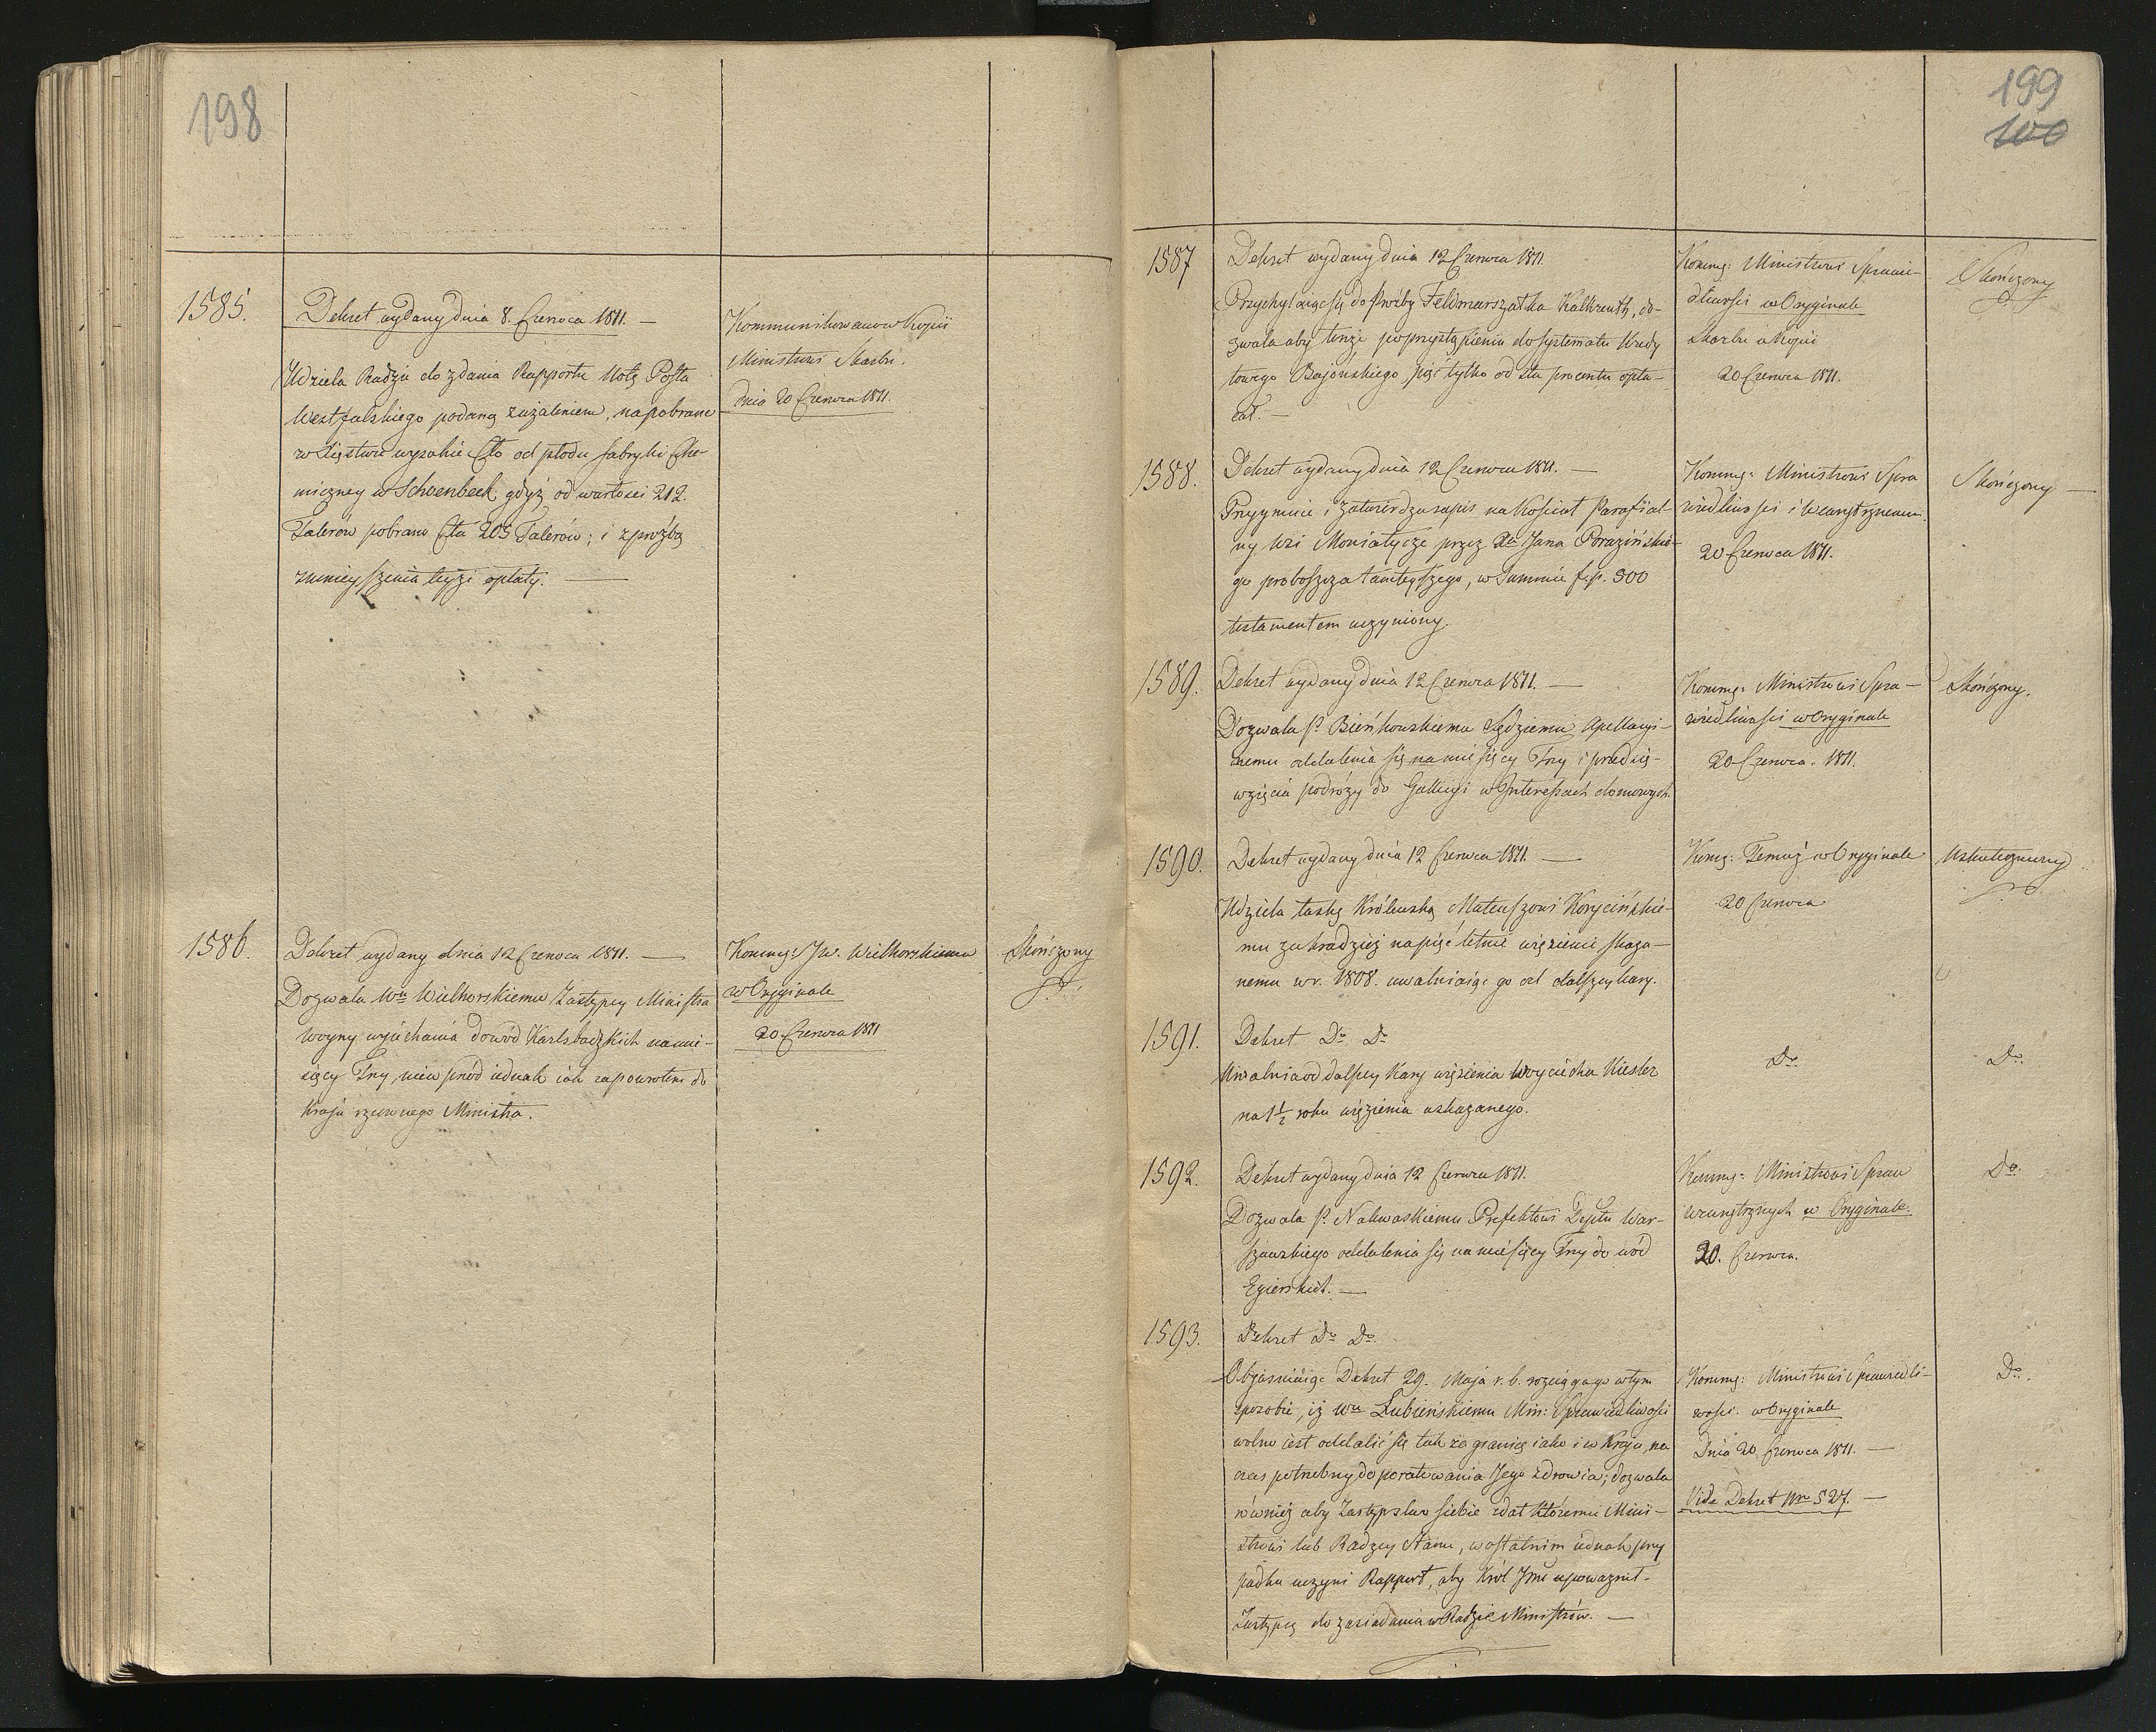 198
1585.
Dekret wydany dnia 8. Czerwca 1811. —
Udziela Radzie do zdania Rapportu Notę Posła
Westfalskiego podaną z użaleniem, na pobrane
w Xięstwie wysokie Cło od płodu fabryki Che-
miczney w Schoenbeck, gdyż od wartości 212.
Talerów pobrano Cła 205 Talerów; i z prośbą
zmnieyszenia teyże opłaty. —
Kommunikowano w Kopii
Ministrowi Skarbu.
dnia 20 Czerwca 1811.
1586.
Dekret wydany dnia 12 Czerwca 1811. —
Dozwala Wu Wielhorskiemu Zastępcy Ministra
Woyny wyiechania do wód Karlsbadzkich na mie-
sięcy Trzy, nie wprzód iednak iak za powrotem do
Kraju rzeczonego Ministra.
Kommg: JW. Wielhorskiemu
w Oryginale
20 Czerwca 1811
Skończony
199
100
1587
Dekret wydany dnia 12 Czerwca 1811.
Przychylaiąc się do Proźby Feldmarszałka Kalkreuth, do-
zwala aby tenże po przystąpieniu do systematu Kredy
towego Bajońskiego pięć tylko od sta procentu opła-
cał. —
Kommg: Ministrowi Sprawie-
dliwości w Oryginale
Skarbu w Kopii
20 Czerwca 1811.
Skończony
1588.
Dekret wydany dnia 12 Czerwca 1811. —
Przyymuie i zatwierdza zapis na Kościoł Parafial-
ny Wsi Moniatycze przez Xa Jana Porazińskie-
go proboszcza tameyszego, w Summie f.p. 900
testamentem uczyniony.
Kommg: Ministrowi Spra
wiedliwości i Wewnętrznemu.
20 Czerwca 1811.
Skończony —
1589.
Dekret wydany dnia 12 Czerwca 1811. —
Dozwala P. Bieńkowskiemu Sędziemu Apellacyi-
nemu oddalenia się na miesięcy Trzy i przedsię-
wzięcia podróży do Gallicyi w Interessach domowych.
Kommg: Ministrowi Spra-
wiedliwości w Oryginale
20 Czerwca. 1811.
Skończony.
1590.
Dekret wydany dnia 12 Czerwca 1811. —
Udziela łaskę Królewską Mateuszowi Korycińskie-
mu za kradzież na pięć letnie więzienie skaza-
nemu w r. 1808. uwalniaiąc go od dalszey kary.
Komg: Temuż w Oryginale
20 Czerwca
Uskuteczniony
1591.
Dekret Do Do
Uwalnia od dalszey Kary więzienia Woyciecha Kiesler
na 1 1/2 roku więzienia wskazanego.
Do
Do
1592.
Dekret wydany dnia 12 Czerwca 1811.
Dozwala P. Nakwaskiemu Prefektowi Deptu War-
szawskiego oddalenia się na miesięcy Trzy do wód
Egierskich. —
Kommg: Ministrowi Spraw
wewnętrznych w Oryginale.
20. Czerwca.
Do.
1593.
Dekret Do Do.
Obiaśniaiąc Dekret 29. Maja r. b. rozciąga go w tym
sposobie, iż Wu Łubieńskiemu Min: Sprawiedliwości
wolno iest oddalić się tak za granicę iako i w Kraju, na
czas potrzebny do poratowania Jego zdrowia; dozwala
również aby Zastępstwo siebie zdał któremu Mini-
strowi lub Radzcy Stanu, w ostatnim iednak przy
padku uczyni Rapport, aby Król Jmć upoważnił
Zastępcę do zasiadania w Radzie Ministrów. —
Kommg: Ministrowi Sprawiedli-
wości. w Oryginale
Dnia 20 Czerwca 1811. —
Vide Dekret Nro 527. —
Do.